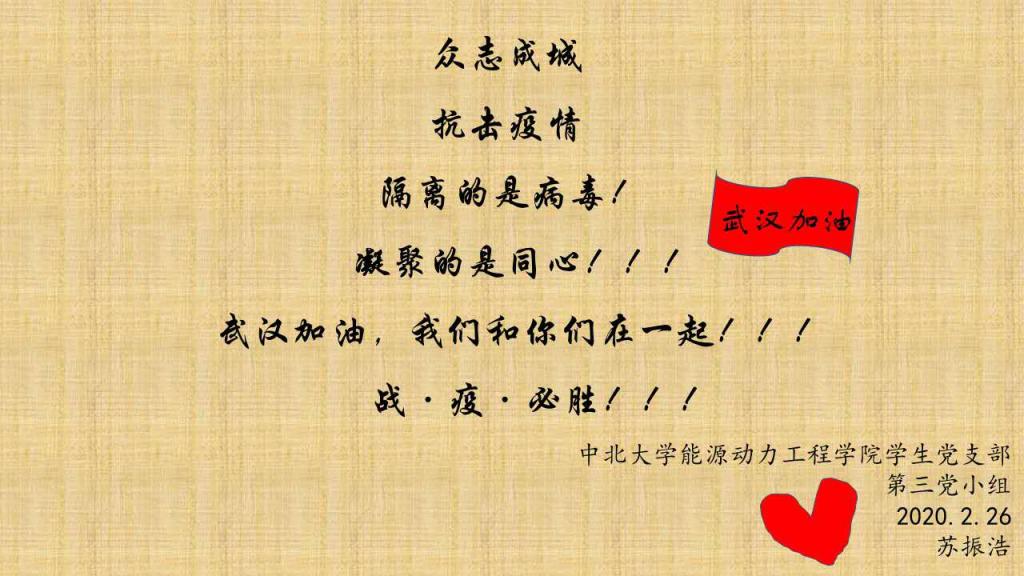 众志成城
抗击疫情
隔离的是病毒！
武汉加油
凝聚的是同心！！！
武汉加油，我们和你们在一起！！！
战·疫·必胜！！！
中北大学能源动力工程学院学生党支部
第三党小组
2020.2.26
苏振浩